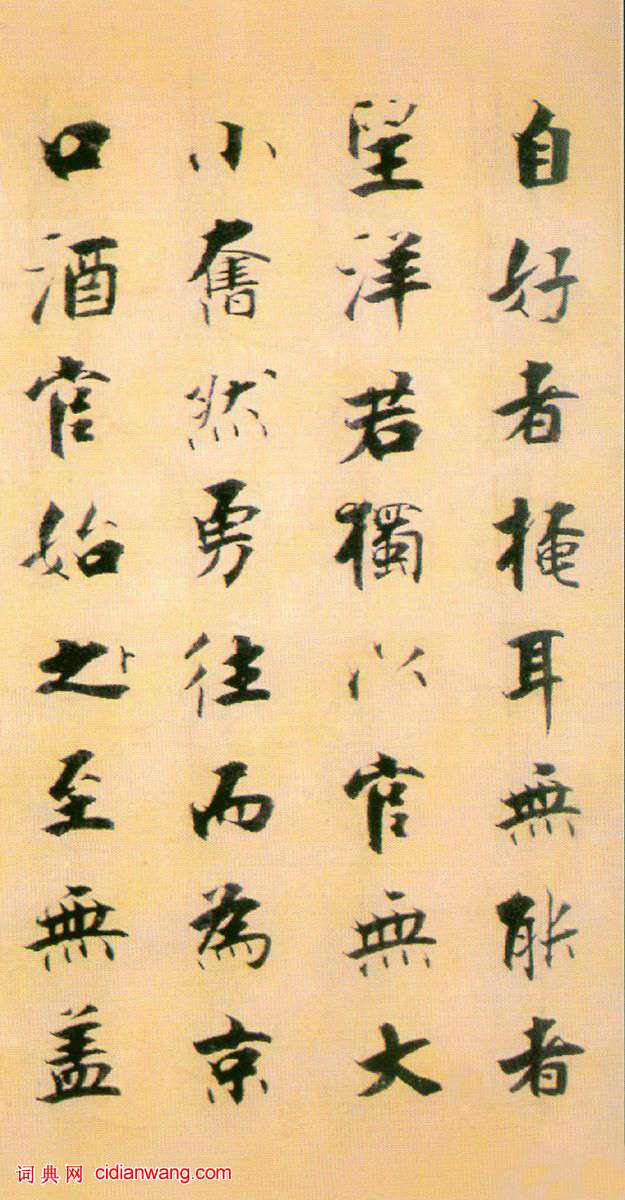 自好者掩耳無能者
望洋若獨以官無大
小奮然勇往而為京
口酒官始之至無盖
词典网 cidianwang.com